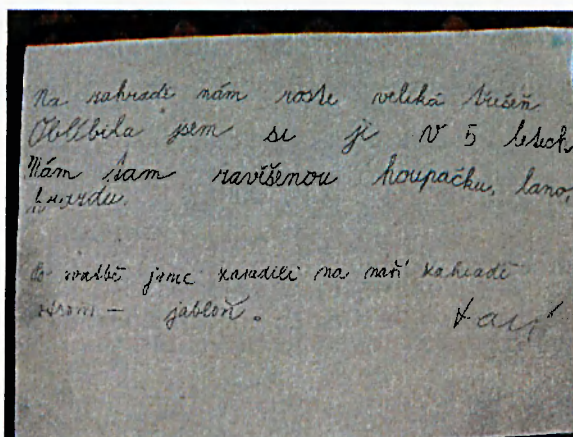 Na zahradě nám roste veliká třešeň
Oblíbila jsem si ji v 5 letech
Mám tam zavěšenou houpačku, lano,
hrazdu.
svatbě jsme zasadili na naší zahradě
strom – jabloň.